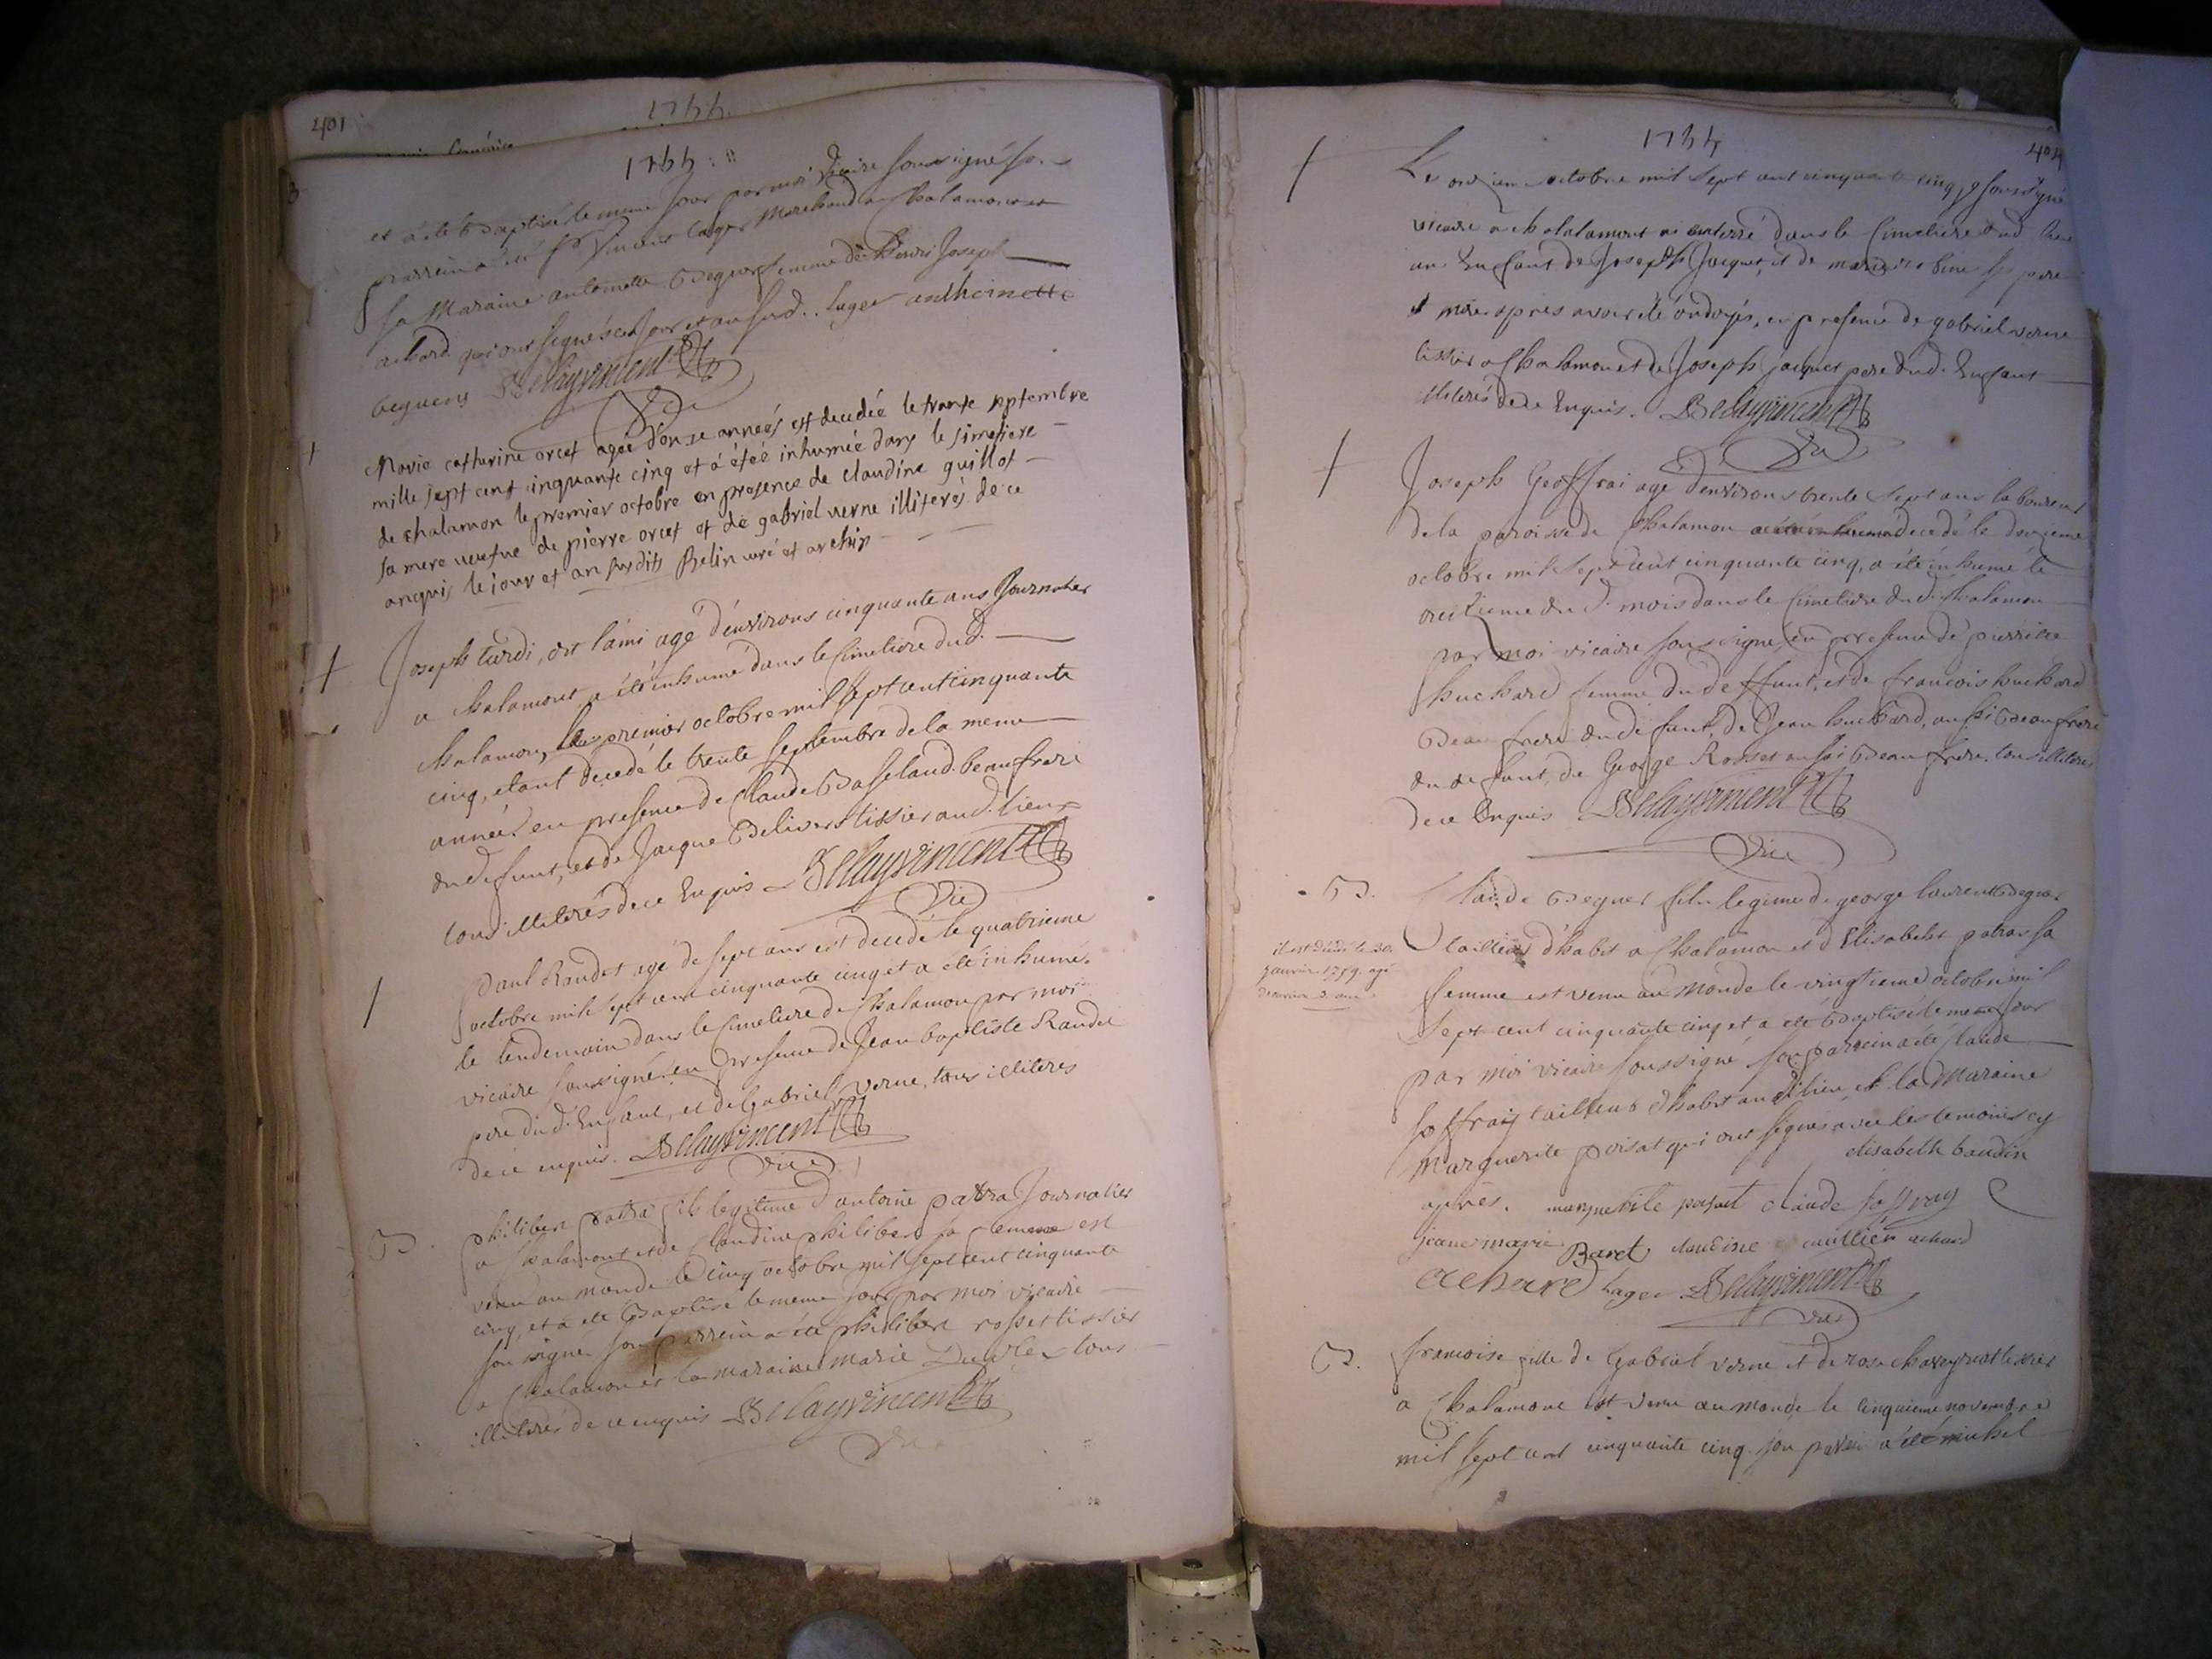 401
1755.
1755
et a été Baptisé le meme jour par moi vicaire soussigné son
parrein a été Sr Vincent lager Marchand a Chalamon et
sa Maraine antoinette Beguers femme de henri Joseph
achard qui ont signés ces jour et an susd. lager anthoinette
beguers Belayvincent
Vic
Marie catherine orcet agée d'onze années est decedée le trante septembre
mille sept cent cinquante cinq et á étéé inhumée dans le simetiere
de chalamon le premier octobre en presence de claudine guillot
sa mere veufve de pierre orcet et de gabriel verne illiterés de ce
anquis le jour et an susdits Belin curé et archip
Joseph turdi, dit l'ami agé d'environs cinquante ans Journalier
a chalamont a été inhumé dans le Cimetiere dud.
Chalamon, le premier octobre mil sept cent cinquante
cinq, etant decedé le trente septembre de la meme
année en presence de Claude beaufrere
du defunt, et de Jacque tissier aud. lieu
tous illiterés de ce Enquis Belayvincent
Vic
Paul Raudet agé de sept ans est decedé le quatrieme
octobre mil sept cent cinquante cinq et a été inhumé
le lendemain dans le Cimetiere de Chalamon par moi
vicaire soussigné en presence de Jean baptiste Raudet
pere du d. Enfant, et de Gabriel verne, tous illiterés
de ce enquis. Belayvincent
vic
B.
philibert patra fils legitime d'antoine patra Journalier
a Chalamont et de Claudine philiberd sa femme est
venu au monde le cinq octobre mil sept cent cinquante
cinq, et a été Baptisé le meme jour par moi vicaire
soussigné son parrein a été philibert rosset tissier
a Chalamon et la maraine marie tous
illiterés de ce enquis Belayvincent
Vic
1755
404
Le onzieme octobre mil sept cent cinquante cinq je soussigné
vicaire a chalamont ai enterré dans le Cimetiere dud lieu
un Enfant de Joseph Jacquet, et de marie ses pere
et mere apres avoir été ondoyés, en presence de gabriel verne
tissier a Chalamon et de Joseph jacquet pere dud. Enfant
illiterés de ce Enquis. Belayvincent
Vic
Joseph Geoffrai agé d'environs trente sept ans laboureur
de la paroisse de Chalamon decedé le douzieme
octobre mil sept cent cinquante cinq, a été inhumé le
treizieme du d. mois dans le Cimetiere du d. Chalamon
par moi vicaire soussigné, en presence de pierrette
huchard femme du deffunt, et de francois huchard
Beau frere du defunt, de Jean huchard, aussi Beau frere
du defunt, de George Rosset aussi Beau frere. tous illiterés
de ce Enquis Belayvincent
Vic
B.
il est décédé le 30
janvier 1759. agé
d'environ 3. ans
Claude Beguer fils legime de george laurent Beguer
tailleur d'habit a Chalamon et d'Elisabeht patras sa
femme est venu au monde le vingtieme octobre mil
sept cent cinquante cinq et a été Baptisé le meme jour
par moi vicaire soussigné, son parrein a été Claude
soffray tailleur d'habit au d. lieu, et la Maraine
Marguerite poisat qui ont signés avec les temoins cy
apres. marguerite poisat claude soffray elisabeth baudin
jeane marie Baret claudine achard
achard lager Belayvincent
vic
B.
francoise fille de Gabriel verne et de rose tissier
a Chalamone est venu au monde le cinquieme novembre
mil sept cent cinquante cinq son parein a été michel